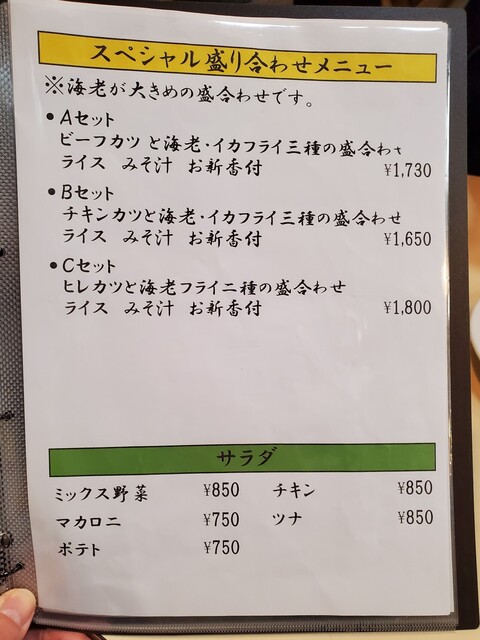 スペシャル盛り合わせメニュー
※海老が大きめの盛合わせです。
•Aセット
ビーフカツと海老・イカフライ三種の盛合わせ
ライス みそ汁 お新香付 ¥1,730
•Bセット
チキンカツと海老・イカフライ三種の盛合わせ
ライス みそ汁 お新香付 ¥1,650
•Cセット
ヒレカツと海老フライ二種の盛合わせ
ライス みそ汁 お新香付 ¥1,800
サラダ
ミックス野菜 ¥850 チキン ¥850
マカロニ ¥750 ツナ ¥850
ポテト ¥750